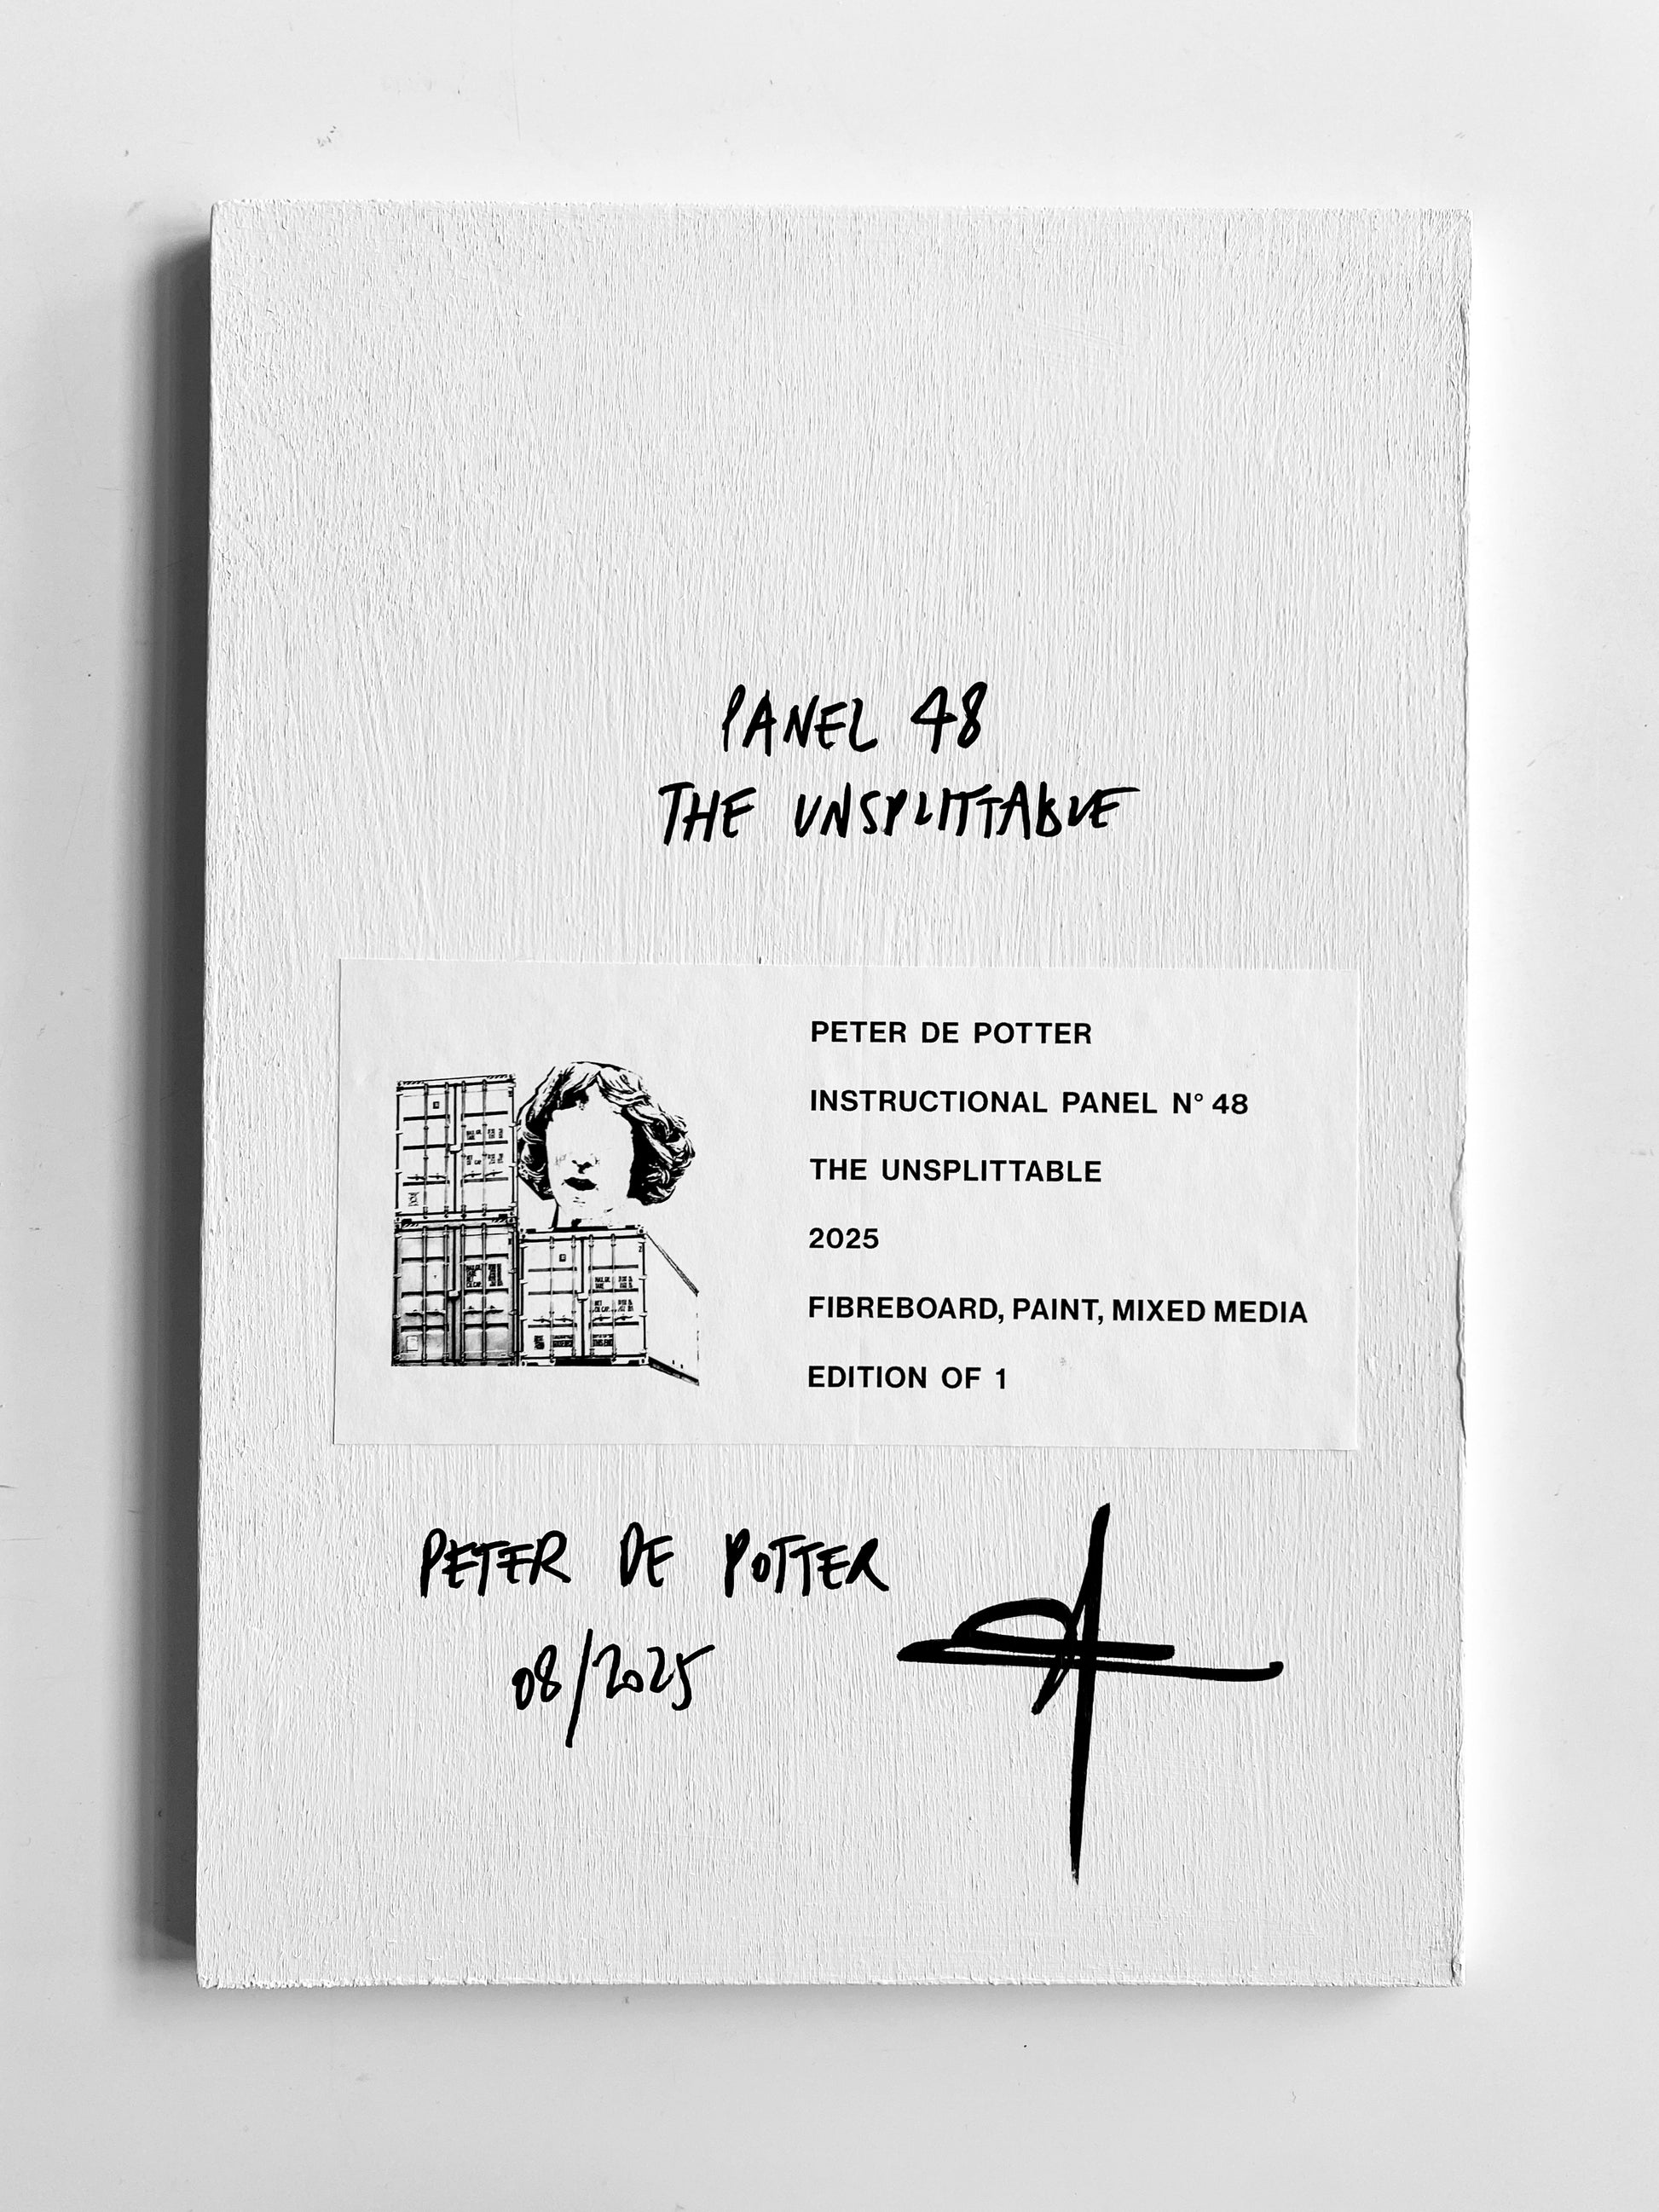 PANEL 48
THE UNSPLITTABLE
PETER DE POTTER
INSTRUCTIONAL PANEL N° 48
THE UNSPLITTABLE
2025
FIBREBOARD, PAINT, MIXED MEDIA
EDITION OF 1
PETER DE POTTER
08/2025